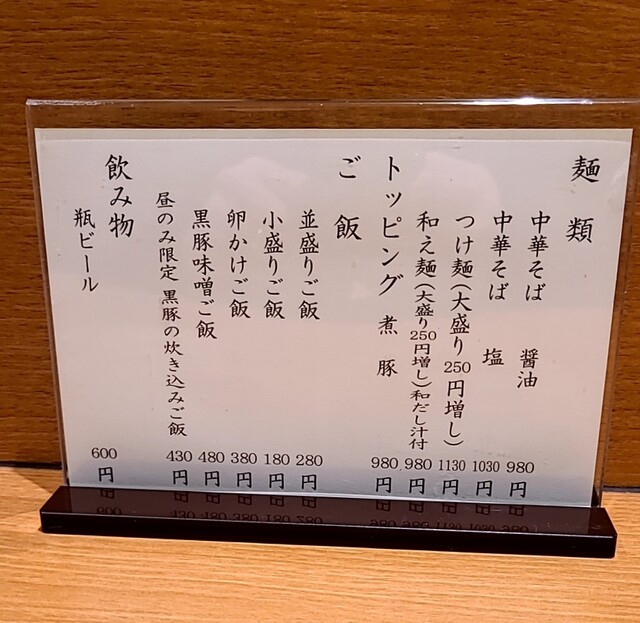 麺類
中華そば 醤油 980円
中華そば 塩 1030円
つけ麺(大盛り250円増し) 1130円
和え麺(大盛り250円増し)和だし汁付 980円
トッピング 煮豚 980円
ご飯
並盛りご飯 280円
小盛りご飯 180円
卵かけご飯 380円
黒豚味噌ご飯 480円
昼のみ限定 黒豚の炊き込みご飯 430円
飲み物
瓶ビール 600円